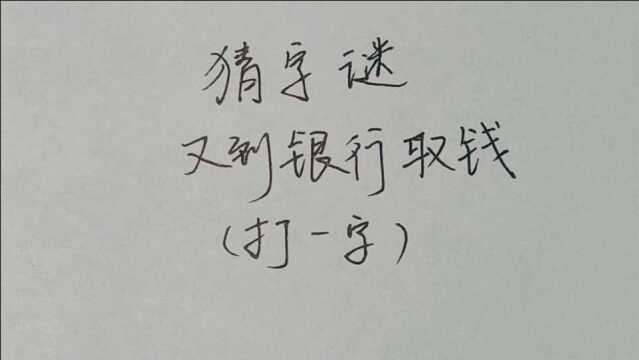 猜字谜
又到银行取钱
（打一字）